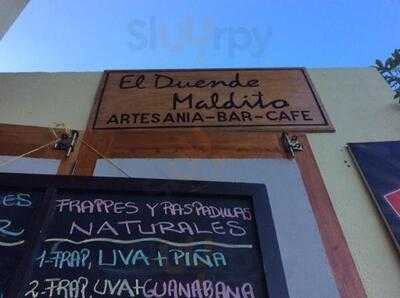 El Duende
Maldito
ARTESANIA-BAR-CAFE
FRAPPES Y RASPADILLAS
NATURALES
1-FRAP, UVA + PIÑA
2-FRAP. UVA+GUANABANA